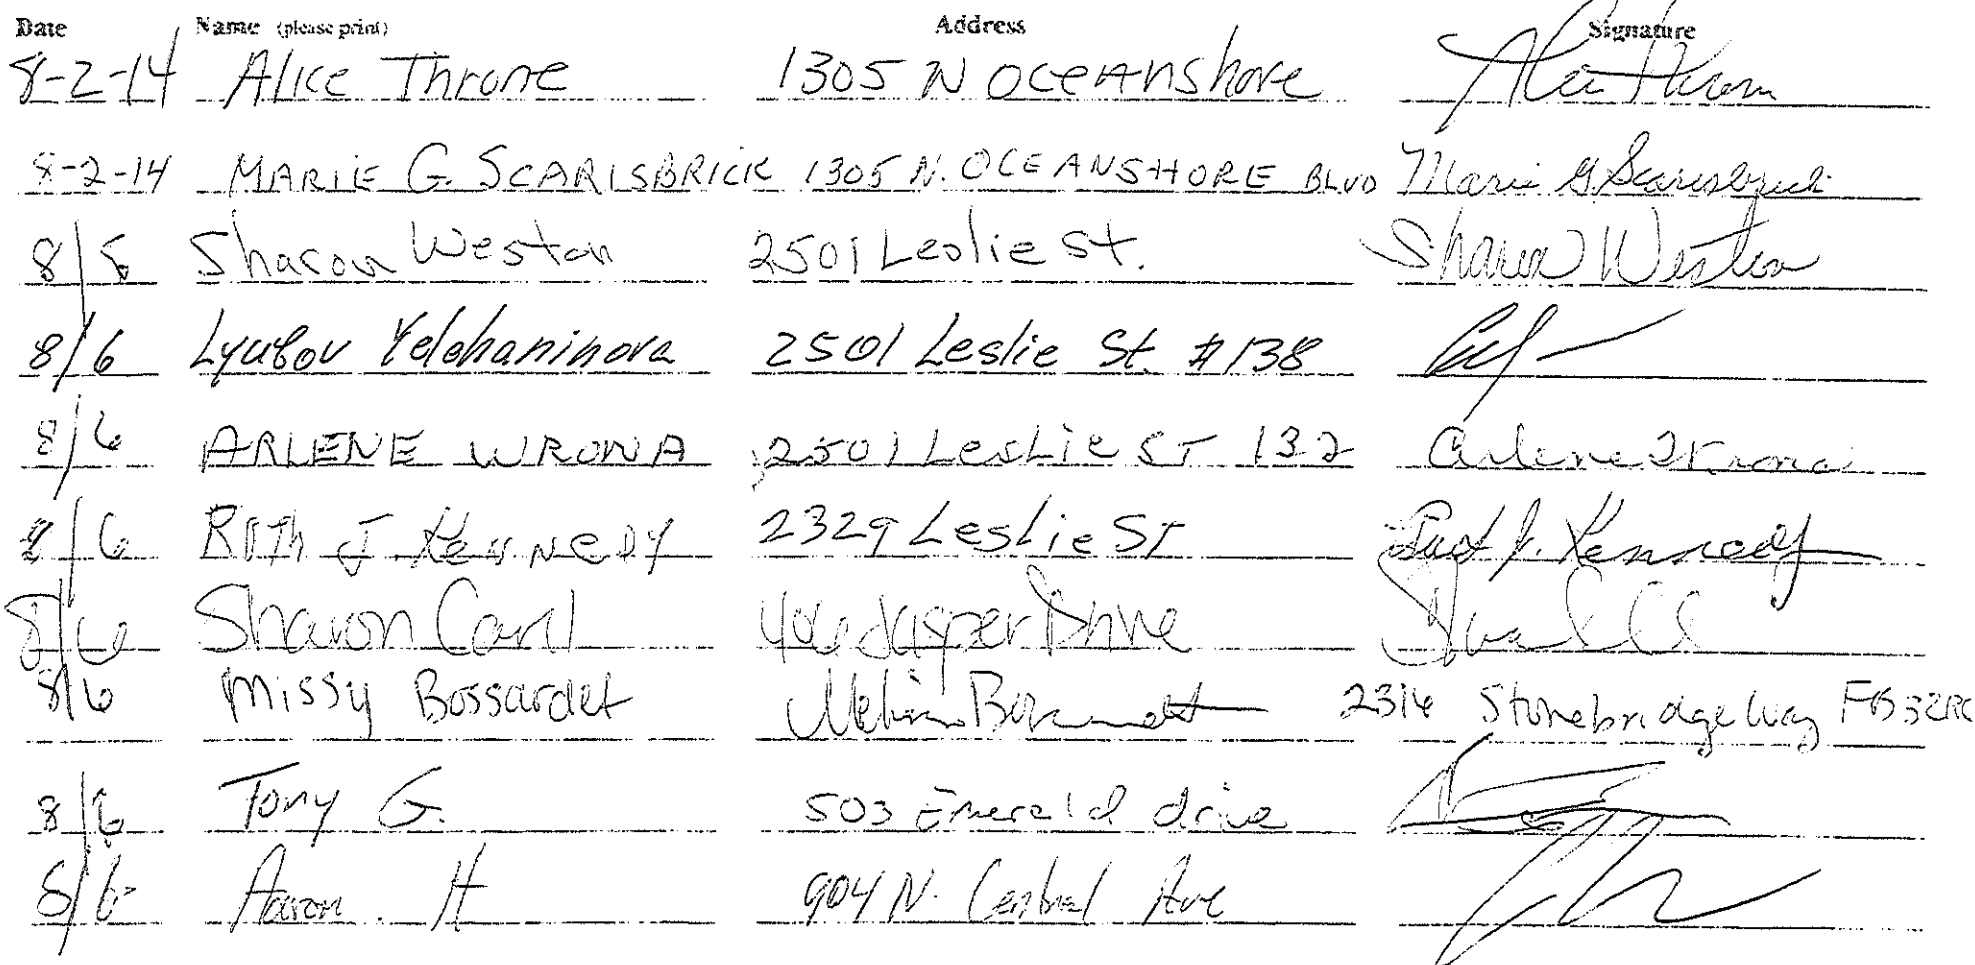 Date Name (please print) Address Signature
8-2-14 Alice Throne 1305 N Oceanshore
8-2-14 MARIE G. SCARISBRICK 1305 N. OCEANSHORE BLVD Marie G Scarisbrick
8/5 Sharon Weston 2501 Leslie St. Sharon Weston
8/6 Lyubov Yelchaninova 2501 Leslie St. #138
8/6 ARLENE WRONA 2501 Leslie ST 132 Arlene Wrona
8/6 Ruth J. Kennedy 2329 Leslie ST Ruth J. Kennedy
8/6 Sharon 406 Jasper Drive
8/6 Missy Bossardet 2316 Stonebridge Way
8/6 Tony G. 503 Emerald drive
8/6 Aaron H 904 N. Central Ave